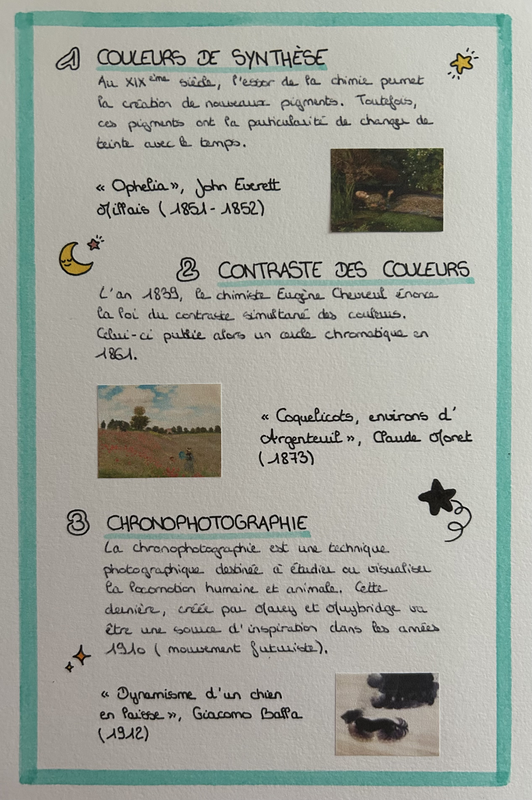 1 COULEURS DE SYNTHÈSE
Au XIXème siècle, l'essor de la chimie permet
la création de nouveaux pigments. Toutefois,
ces pigments ont la particularité de changer de
teinte avec le temps.
« Ophelia », John Everett
Millais (1851-1852)
2 CONTRASTE DES COULEURS
L'an 1839, le chimiste Eugène Chevreul énonce
la loi du contraste simultané des couleurs.
Celui-ci publie alors un cercle chromatique en
1861.
« Coquelicots, environs d'
Argenteuil », Claude Monet
(1873)
3 CHRONOPHOTOGRAPHIE
La chronophotographie est une technique
photographique destinée à étudier ou visualiser
la locomotion humaine et animale. Cette
dernière, créée par Marey et Muybridge va
être une source d'inspiration dans les années
1910 (mouvement futuriste).
« Dynamisme d'un chien
en laisse », Giacomo Balla
(1912)